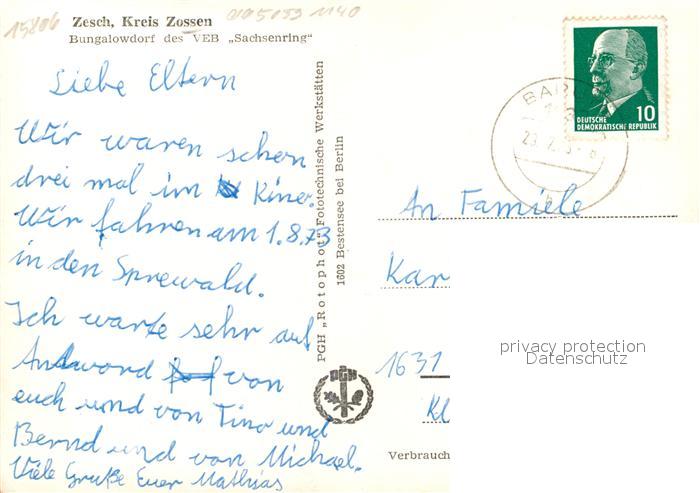 15806
005053 1140
Zesch, Kreis Zossen
Bungalowdorf des VEB „Sachsenring"
Liebe Eltern
Wir waren schon
drei mal im Kino.
Wir fahren am 1.8.73
in den Sprewald.
Ich warte sehr auf
Andword von
euch und von Tino und
Bernd und von Michael.
Viele Gruße Euer Mathias
PGH „Rotophot" Fototechnische Werkstätten
1602 Bestensee bei Berlin
PGH
10
DEUTSCHE
DEMOKRATISCHE REPUBLIK
BARU
23. 7.
An Famiele
Kar
1631
Kl
privacy protection
Datenschutz
Verbrauch